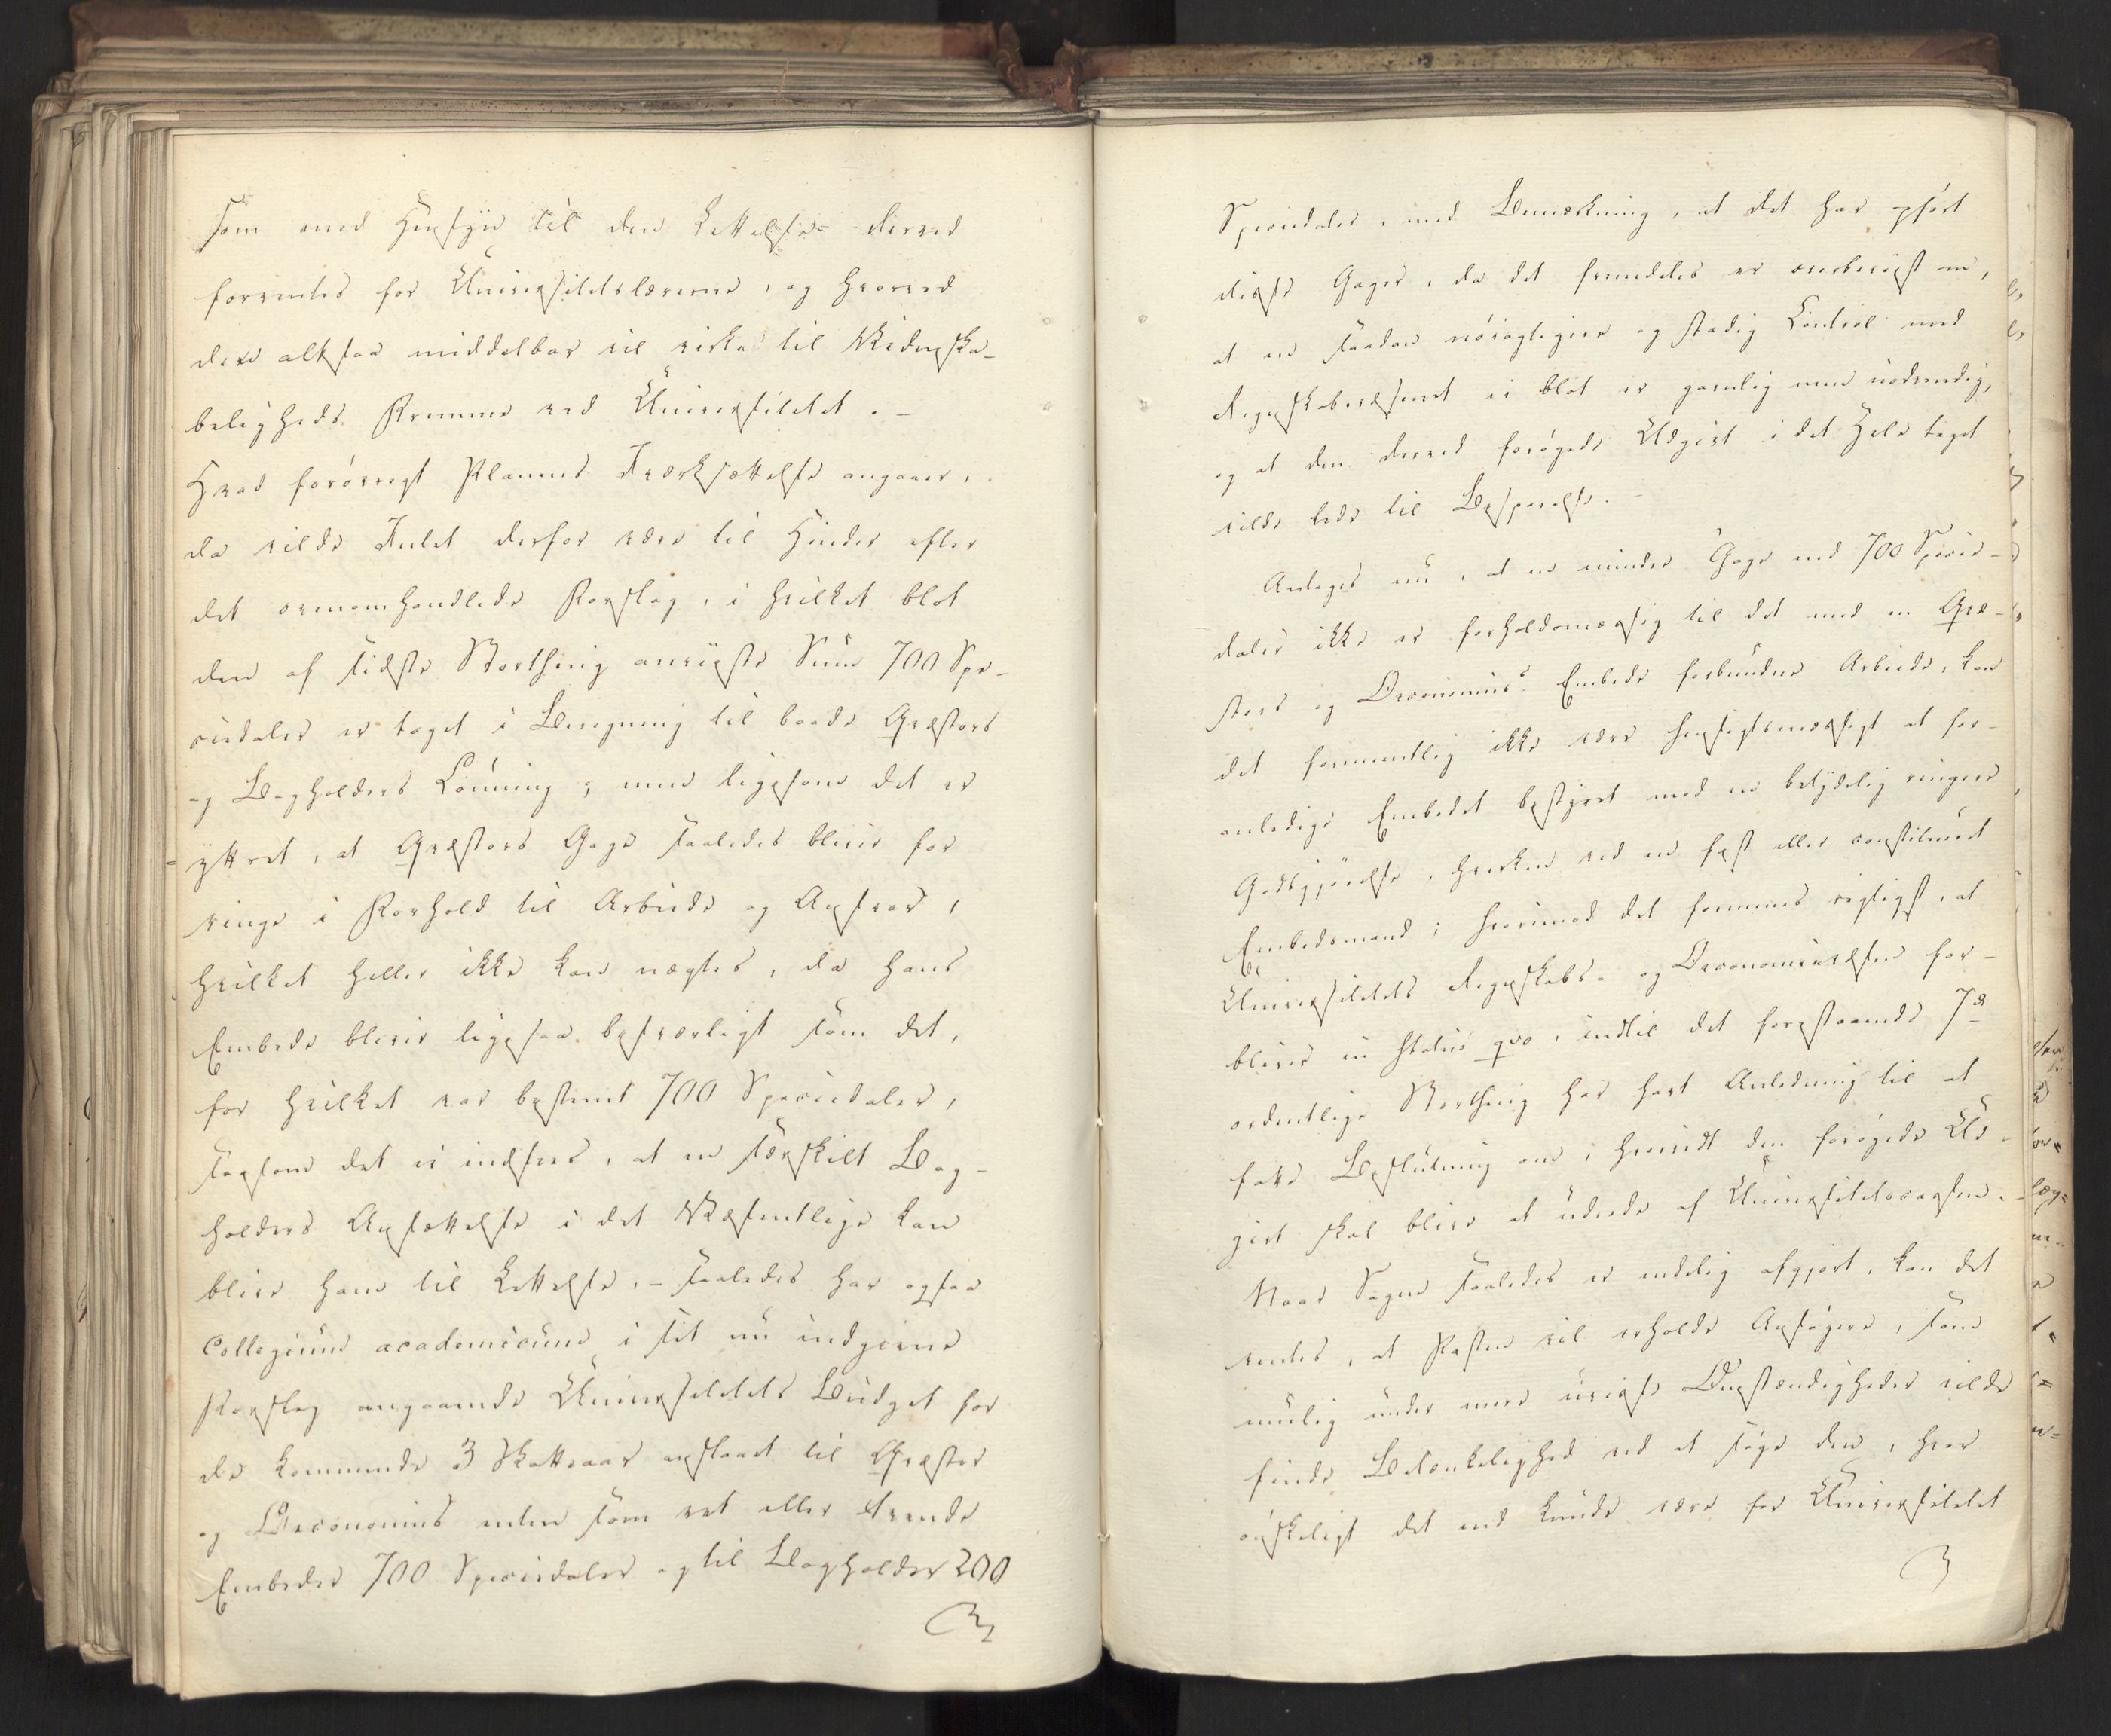 som med Hensyn til den Lettelse derved
forventes for Universitetslærerne, og hvorved
dere altsaa middelbar vil virke til Videnska-
beligheds Fremme ved Universitetet. –
Hvad forøvrigt Planens Iværksættelse angaaer,
da vilde Intet derfor være til Hinder efter
det ovenomhandlede Forslag, i hvilket blot
den af sidste Storthing anviiste Sum 700 Spe-
ciedaler er taget i Beregning til baade Qvæstors
og Bogholders Lønning; men ligesom det er
yttret, at Qvæstors Gage saaledes bliver for
ringe i Forhold til Arbeide og Ansvar,
hvilket heller ikke kan nægtes, da hans
Embede bliver ligesaa besværligt som det,
for hvilket var bestemt 700 Speciedaler,
saasom det ei indsees, at en særskilt Bog-
holders Ansættelse i det Væsentlige kan
blive ham til Lettelse. – saaledes har ogsaa
Collegium academicum i sit nu indgivne
Forslag angaaende Universitetets Budget for
de kommende 3 Skatteaar opstaaet til Qvæstor
og Oeconomus enten som eet eller tvende
Embeder 700 Speciedaler og til Bogholder 200
Speciedaler, med Bemærkning, at det har opført
disse Gager, da det fremdeles er overbeviist om,
at en saadan nøiagtigere og stadig Control med
Regnskabsvæsenet ei blot er gavnlig men nødvendig,
og at den derved forøgede Udgivt i det Hele taget
vilde lede til Besparelse. –
Antages nu, at en mindre Gage end 700 Specie-
daler ikke er forholdsmæssig til det med en Qvæ-
stors og Oeconomus Embede forbundne Arbeide, kan
det formeentlig ikke være hensigtsmæssigt at for-
anledige Embedet bestyret med en betydelig ringere
Godtgjørelse, hverken ved en fast eller constitueret
Embedsmand; hvorimod det formenes rigtigst, at
Universitetets Regnskabs- og Oeconomievæsen for-
bliver in status qvo, indtil det forestaaende 7de
ordentlige Storthing har havt Anledning til at
fatte Beslutning om, hvorvidt den forøgede Ud-
givt skal blive at udrede af Universitetscassen. –
Naar Sagen saaledes er endelig afgjort, kan det
ventes, at Posten vil erholde Ansøgere, som
muelig under mere uvisse Omstændigheder vilde
finde Betænkelighed ved at søge den, hvor
ønskeligt det end kunde være for Universitetet